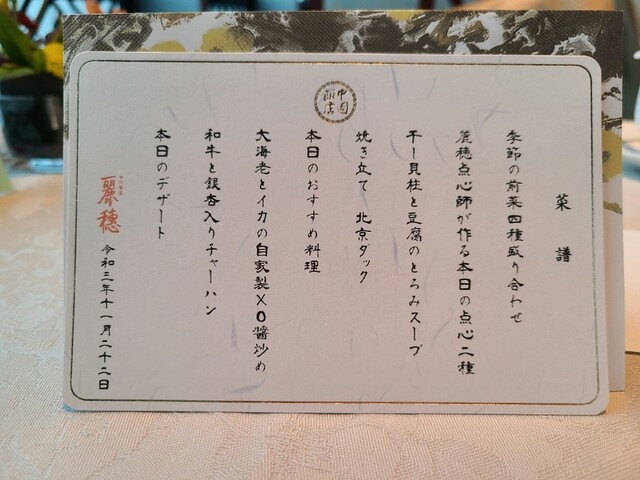 中国飯店
菜譜
季節の前菜四種盛り合わせ
麗穂点心師が作る本日の点心二種
干し貝柱と豆腐のとろみスープ
焼き立て 北京ダック
本日のおすすめ料理
大海老とイカの自家製XO醬炒め
和牛と銀杏入りチャーハン
本日のデザート
麗穂
令和三年十一月二十二日